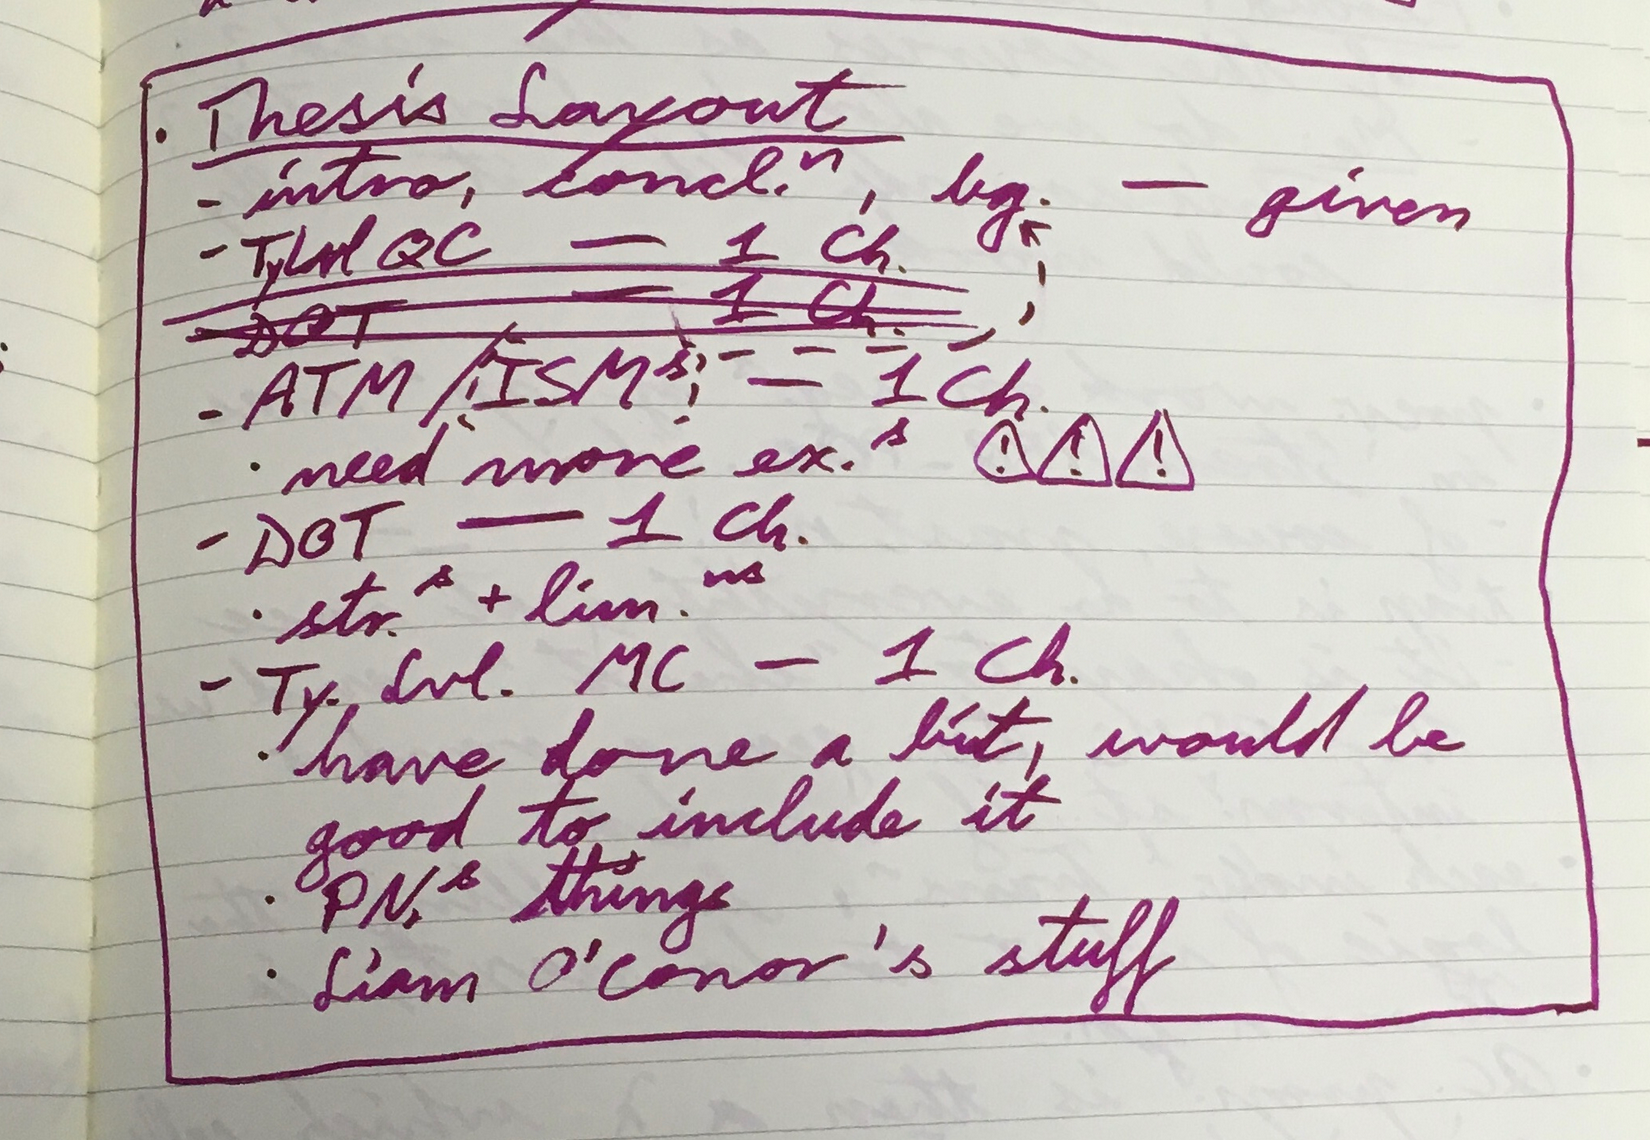 · Thesis Layout
- intro, concl.ⁿ, bg. — given
- TyLvl QC — 1 Ch.
- DOT — 1 Ch.
- ATM / ISMˢ — 1 Ch.
· need more ex.ˢ ⚠ ⚠ ⚠
- DOT — 1 Ch.
· str.ˢ + lim.ⁿˢ
- Ty. Lvl. MC — 1 Ch.
· have done a bit, would be
good to include it
· PN.ˢ things
· Liam O'Conor's stuff